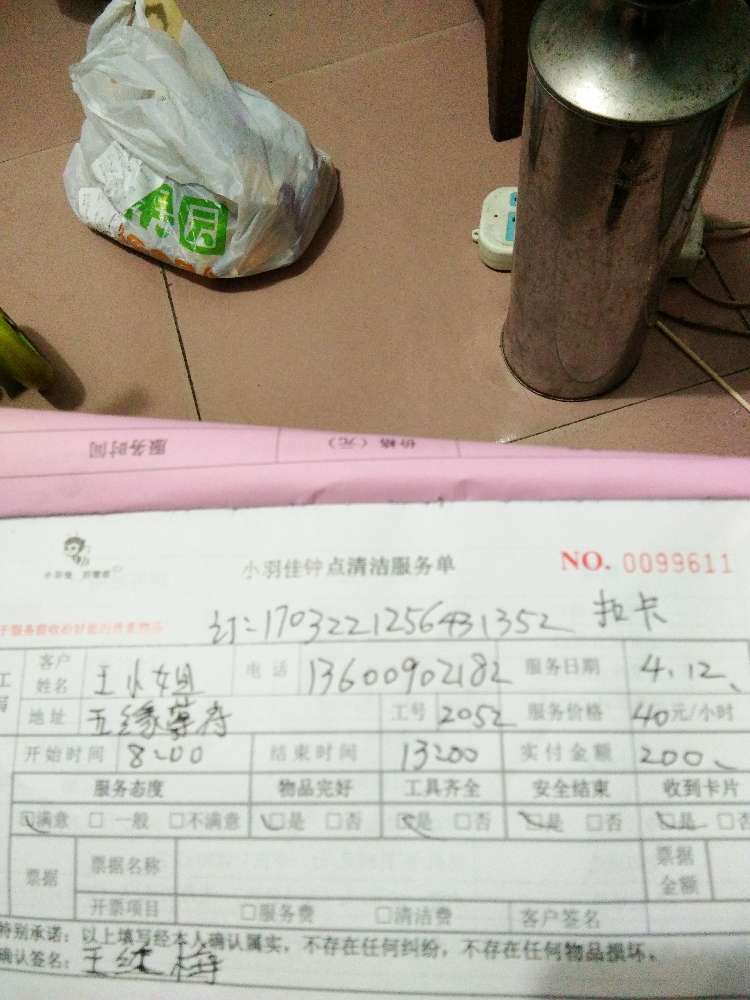 果园
服务时间 价格（元）
小羽佳钟点清洁服务单 NO. 0099611
订:1703221256431352 拉卡
客户姓名 王小姐 电话 13600902182 服务日期 4.12、
地址 五缘尊府 工号 2052 服务价格 40元/小时
开始时间 8:00 结束时间 13:00 实付金额 200、
服务态度 物品完好 工具齐全 安全结束 收到卡片
□满意 □一般 □不满意 □是 □否 □是 □否 □是 □否 □是 □否
票据 票据名称 票据金额
开票项目 □服务费 □清洁费 客户签名
特别承诺：以上填写经本人确认属实，不存在任何纠纷，不存在任何物品损坏。
确认签名：王红梅